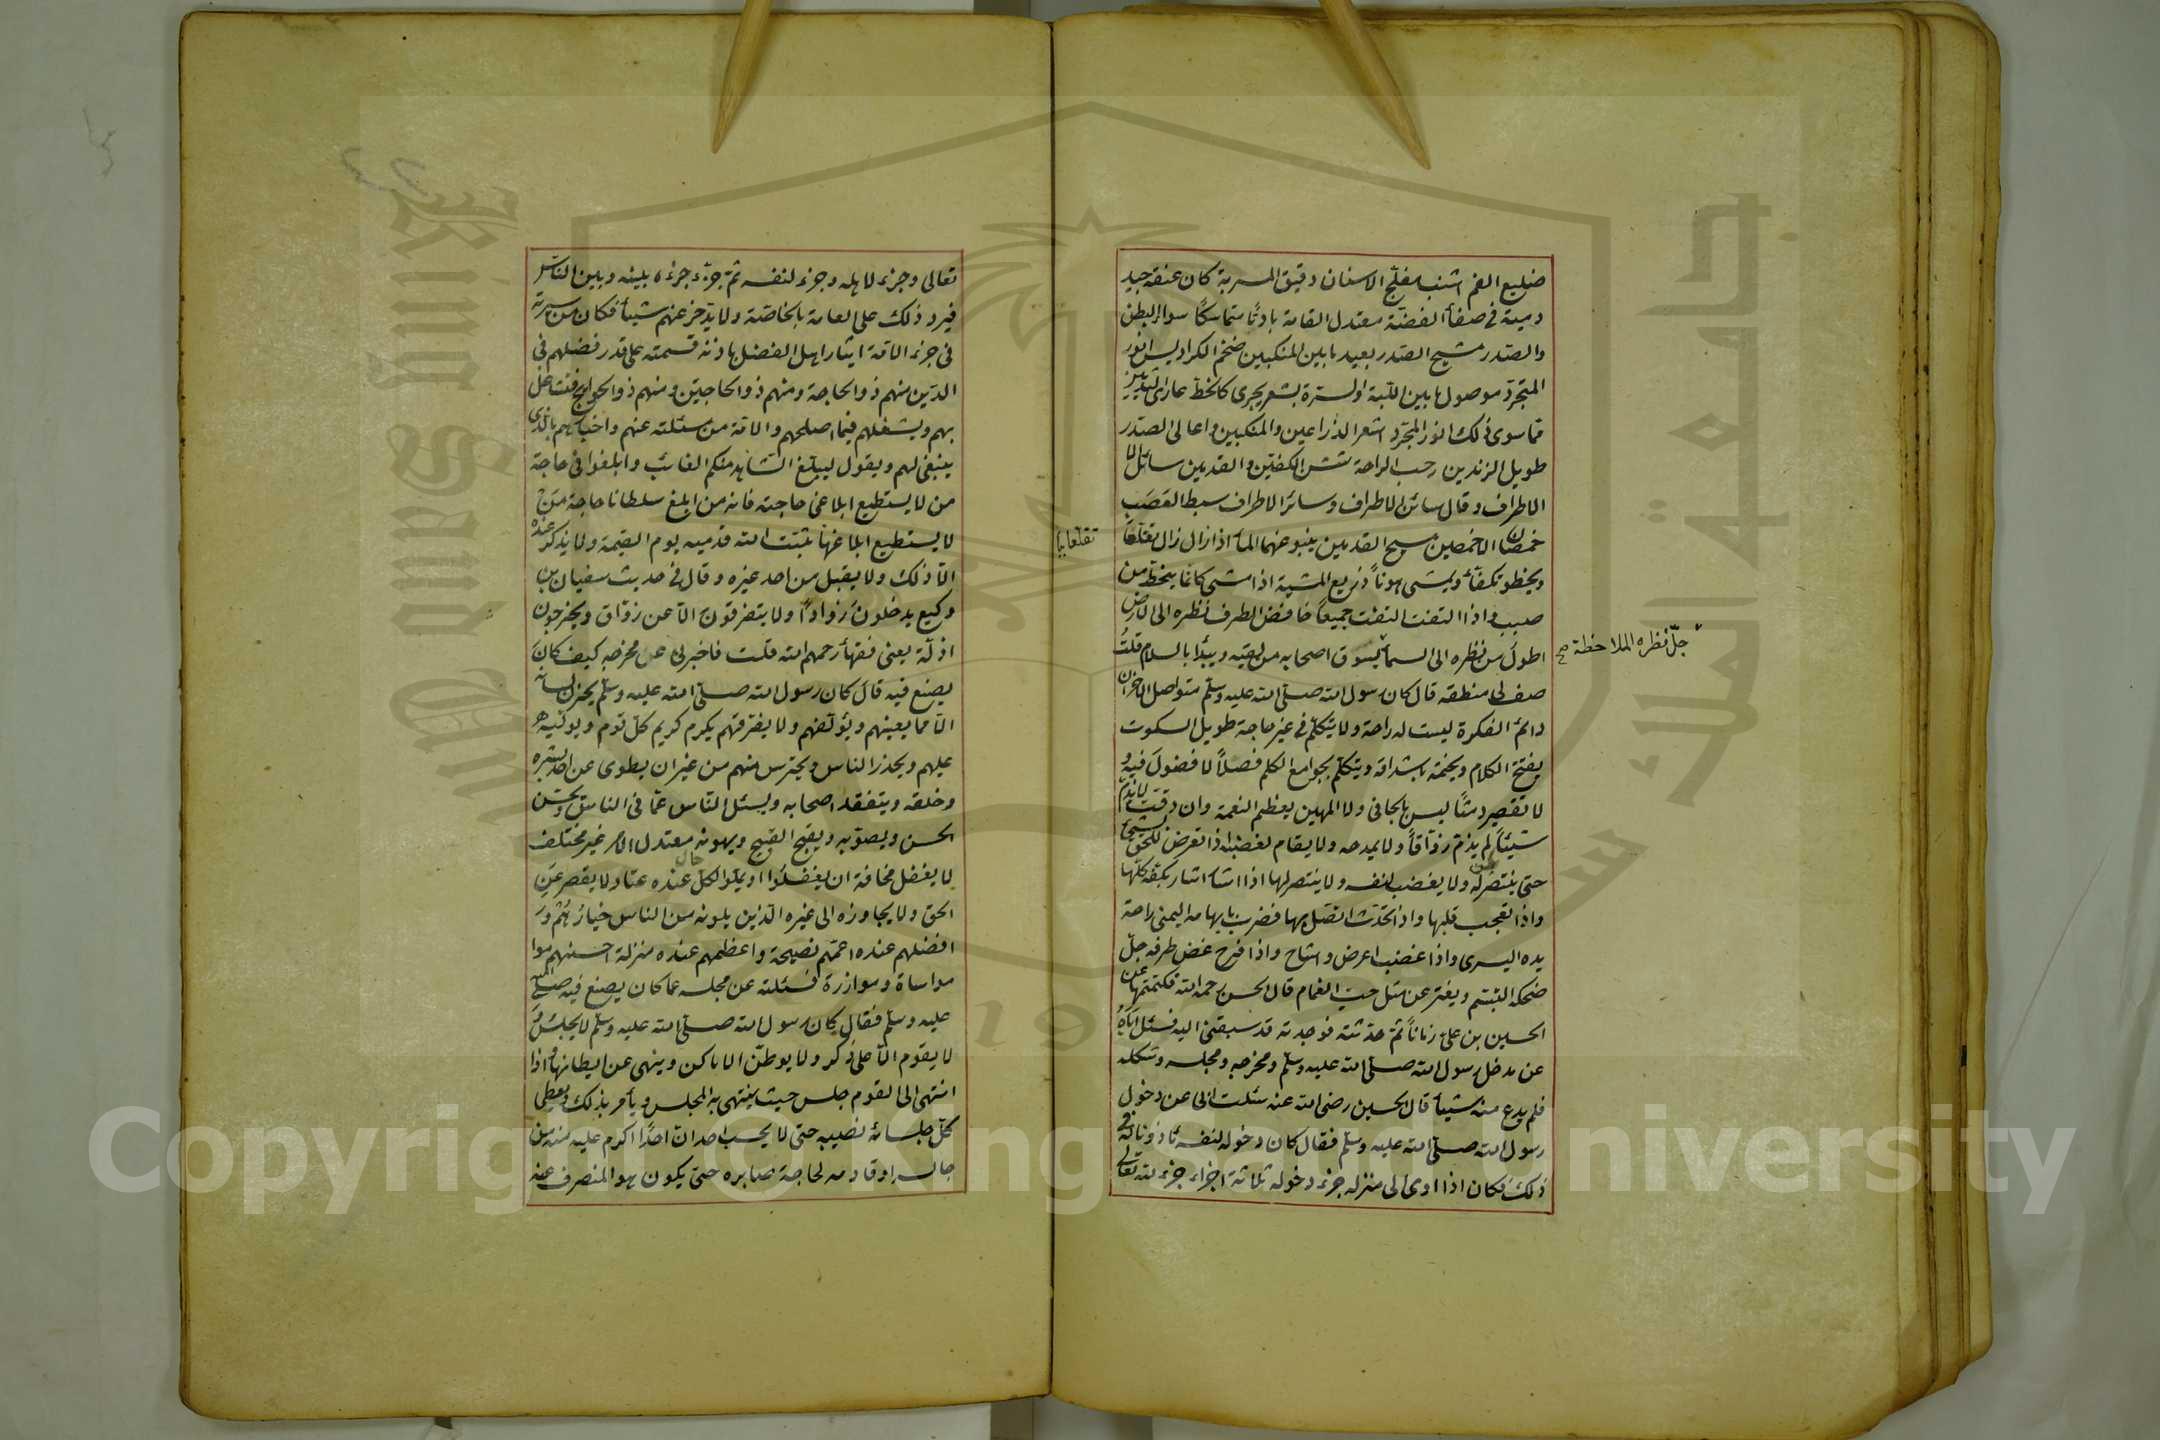 ضليع الفم اشنب مفلّج الاسنان دقيق المسربة كان عنقه جيد
دمية في صفاء الفضّة معتدل القامة بادنًا متماسكًا سواء البطن
والصّدر مشيح الصّدر بعيد ما بين المنكبين ضخم الكراديس انور
المتجرّد موصول ما بين اللّبة والسّرة بشعر يجرى كالخطّ عارى الثديين
مما سوى ذلك انور المتجرّد اشعر الذراعين والمنكبين واعالى الصّدر
طويل الزندين رحب الراحة شثن الكفّين والقدمين سائل
الاطراف وقال سائن الاطراف وسائر الاطراف سبط القصب
خمصان الاخمصين مسيح القدمين ينبو عنهما الماء اذا زال زال تقلّعًا
تقلّعًا
ويخطو تكفّأ ويمشى هونًا ذريع المشية اذا مشى كانّما ينحطّ من
صبب واذا التفت التفت جميعًا خافض الطرف نظره الى الارض
اطول من نظره الى السماء يسوق اصحابه من لقيه ويبدأ بالسلام قلتُ
جلّ نظره الملاحظة صح
صف لى منطقه قال كان رسول الله صلّى الله عليه وسلّم متواصل الاحزان
دائم الفكرة ليست له راحة ولا يتكلّم في غير حاجة طويل السكوت
يفتتح الكلام ويختمه باشداقه ويتكلّم بجوامع الكلم فصلاً لا فضولَ فيه و
لا تقصير دمثًا ليس بالجافى ولا المهين يعظم النعمة وان دقّت لا يذمّ
شيئًا لم يذمّ ذوّاقًا ولا يمدحه ولا يقام لغضبه اذا تعرض للحق بشئ
حتى ينتصر له ولا يغضب لنفسه ولا ينتصر لها اذا اشار اشار بكفّه كلّها
واذا تعجب قلبها واذا تحدّث اتّصل بها فضرب بابهامه اليمنى راحة
يده اليسرى واذا غضب اعرض واشاح واذا فرح غض طرفه جلّ
ضحكه التبسّم ويفتر عن مثل حبّ الغمام قال الحسن رحمه الله فكتمتها عن
الحسين بن على زمانًا ثمّ حدّثته فوجدته قد سبقنى اليه فسئل اباهُ
عن مدخل رسول الله صلّى الله عليه وسلّم ومخرجه ومجلسه وشكله
فلم يدع منه شيئًا قال الحسين رضى الله عنه سئلت ابى عن دخول
رسول الله صلّى الله عليه وسلّم فقال كان دخوله لنفسه مأذونا له في
ذلك فكان اذا اوى الى منزله جزء دخوله ثلاثة اجزاء جزء لله تعالى
تعالى وجزء لاهله وجزء لنفسه ثمّ جزّء جزءه بينه وبين النّاس
فيرد ذلك على العامة بالخاصّة ولا يدّخر عنهم شيئًا فكان من سيرته
في جزء الامّة ايثار اهل الفضل باذنه قسمته على قدر فضلهم في
الدّين منهم ذو الحاجة ومنهم ذو الحاجتين ومنهم ذو الحوائج فتشاغل
بهم ويشغلهم فيما اصلحهم والامّة من مسئلته عنهم واخبارهم بالّذى
ينبغى لهم ويقول ليبلّغ الشّاهد منكم الغائب وابلغوا في حاجة
من لا يستطيع ابلاغى حاجته فانه من ابلغ سلطانا حاجة مَنْ
لا يستطيع ابلاغها ثبّت الله قدميه يوم القيمة ولا يذكر عنده
الّا ذلك ولا يقبل من احد غيره وقال في حديث سفيان بن
وكيع يدخلون رُوّادًا ولا يتفرقون الّا عن ذوّاق ويخرجون
ادلّة يعنى فقهاء رحمهم الله قلت فاخبرنى عن مخرجه كيف كانَ
يصنع فيه قالَ كان رسول الله صلّى الله عليه وسلّم يخزن لسانه
الّا مما يعنيهم ويؤلّفهم ولا يفرّقهم يكرم كريم كلّ قوم ويولّيه
عليهم ويحذر الناس ويحترس منهم من غير ان يطوى عن احد بشره
وخلقه ويتفقد اصحابه ويسئل النّاس عمّا في الناس ويحسّن
الحسن ويصوّبه ويقبّح القبيح ويهونه معتدل الامر غير مختلف
لا يغفل مخافة ان يغفلوا او يملّوا لكلّ حال عنده عتاد لا يقصر عن
الحق ولا يجاوزه الى غيره الّذين يلونه من الناس خيارُهُمْ وَ
افضلهم عنده اعمّهم نصيحة واعظمهم عنده منزلة احسنهم موا
مواساة وموازرة فسئلته عن مجلسه عما كان يصنع فيه صلّى الله
عليه وسلّم فقال كان رسول الله صلّى الله عليه وسلّم لا يجلسُ وَ
لا يقوم الّا على ذكر ولا يوطّن الاماكن وينهى عن ايطانها واذا
انتهى الى القوم جلس حيث ينتهى به المجلس ويأمر بذلك ويعطى
كلّ جلسائه نصيبه حتى لا يحسب احد انّ احدًا اكرم عليه منه من
جالسه او قاومه لحاجة صابره حتى يكون هو المنصرف عنه
Copyright © King Saud University
King Saud University
جامعة الملك سعود
19